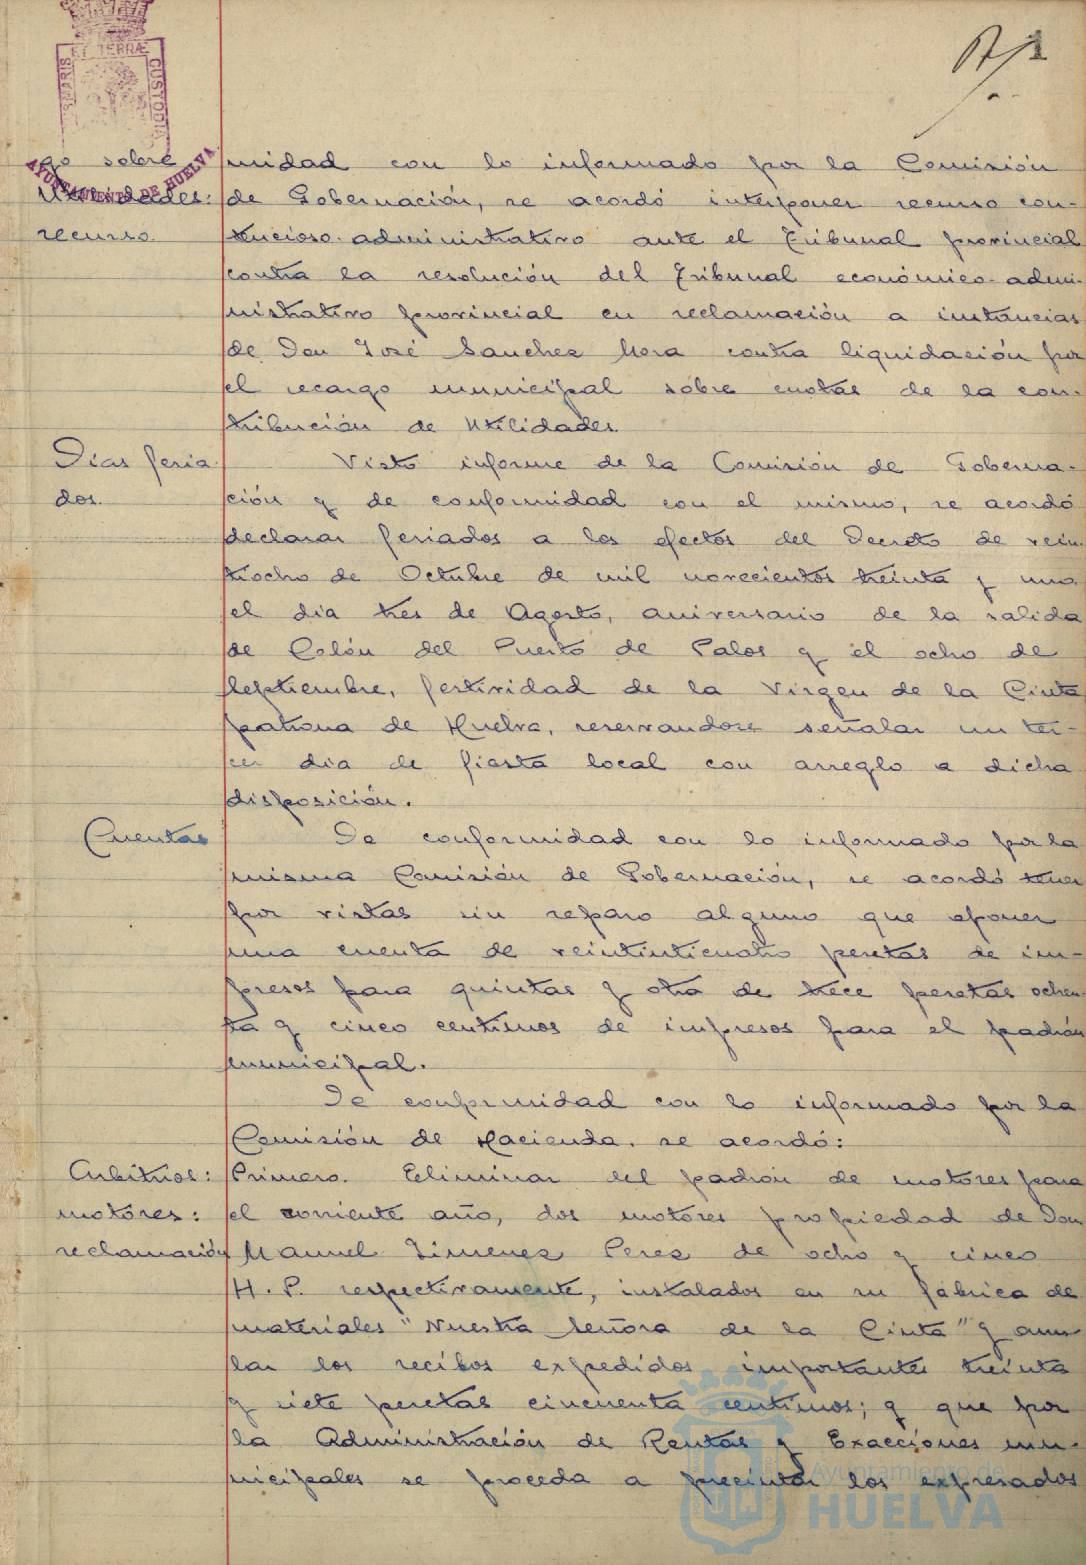 ET TERRÆ
MARIS
CUSTODIA
AYUNTAMIENTO DE HUELVA
go sobre
Utilidades:
recurso.
midad con lo informado por la Comisión
de Gobernación, se acordó interponer recurso con-
tencioso-administrativo ante el Tribunal provincial
contra la resolución del Tribunal económico-admi-
nistrativo provincial en reclamación a instancias
de Don José Sanchez Mora contra liquidación por
el recargo municipal sobre cuotas de la con-
tribución de Utilidades.
Dias feria-
dos.
Visto informe de la Comisión de Goberna-
ción y de conformidad con el mismo, se acordó
declarar feriados a los efectos del Decreto de vein-
tiocho de Octubre de mil novecientos treinta y uno
el dia tres de Agosto, aniversario de la salida
de Colón del Puerto de Palos y el ocho de
Septiembre, festividad de la Virgen de la Cinta
patrona de Huelva, reservandose señalar un ter-
cer dia de fiesta local con arreglo a dicha
disposición.
Cuentas
De conformidad con lo informado por la
misma Comisión de Gobernación, se acordó tener
por vistas sin reparo alguno que oponer
una cuenta de veintinticuatro pesetas de im-
presos para quintas y otra de trece pesetas ochen-
ta y cinco centimos de impresos para el padrón
municipal.
De conformidad con lo informado por la
Comisión de Hacienda, se acordó:
Arbitrios:
motores:
reclamación
Primero. Eliminar del padrón de motores para
el corriente año, dos motores propiedad de Don
Manuel Jimenez Perez de ocho y cinco
H.P. respectivamente, instalados en su fábrica de
materiales "Nuestra Señora de la Cinta" y anu-
lar los recibos expedidos importantes treinta
y siete pesetas cincuenta centimos; y que por
la Administración de Rentas y Exacciones mu-
nicipales se proceda a precintar los expresados
Ayuntamiento de
HUELVA